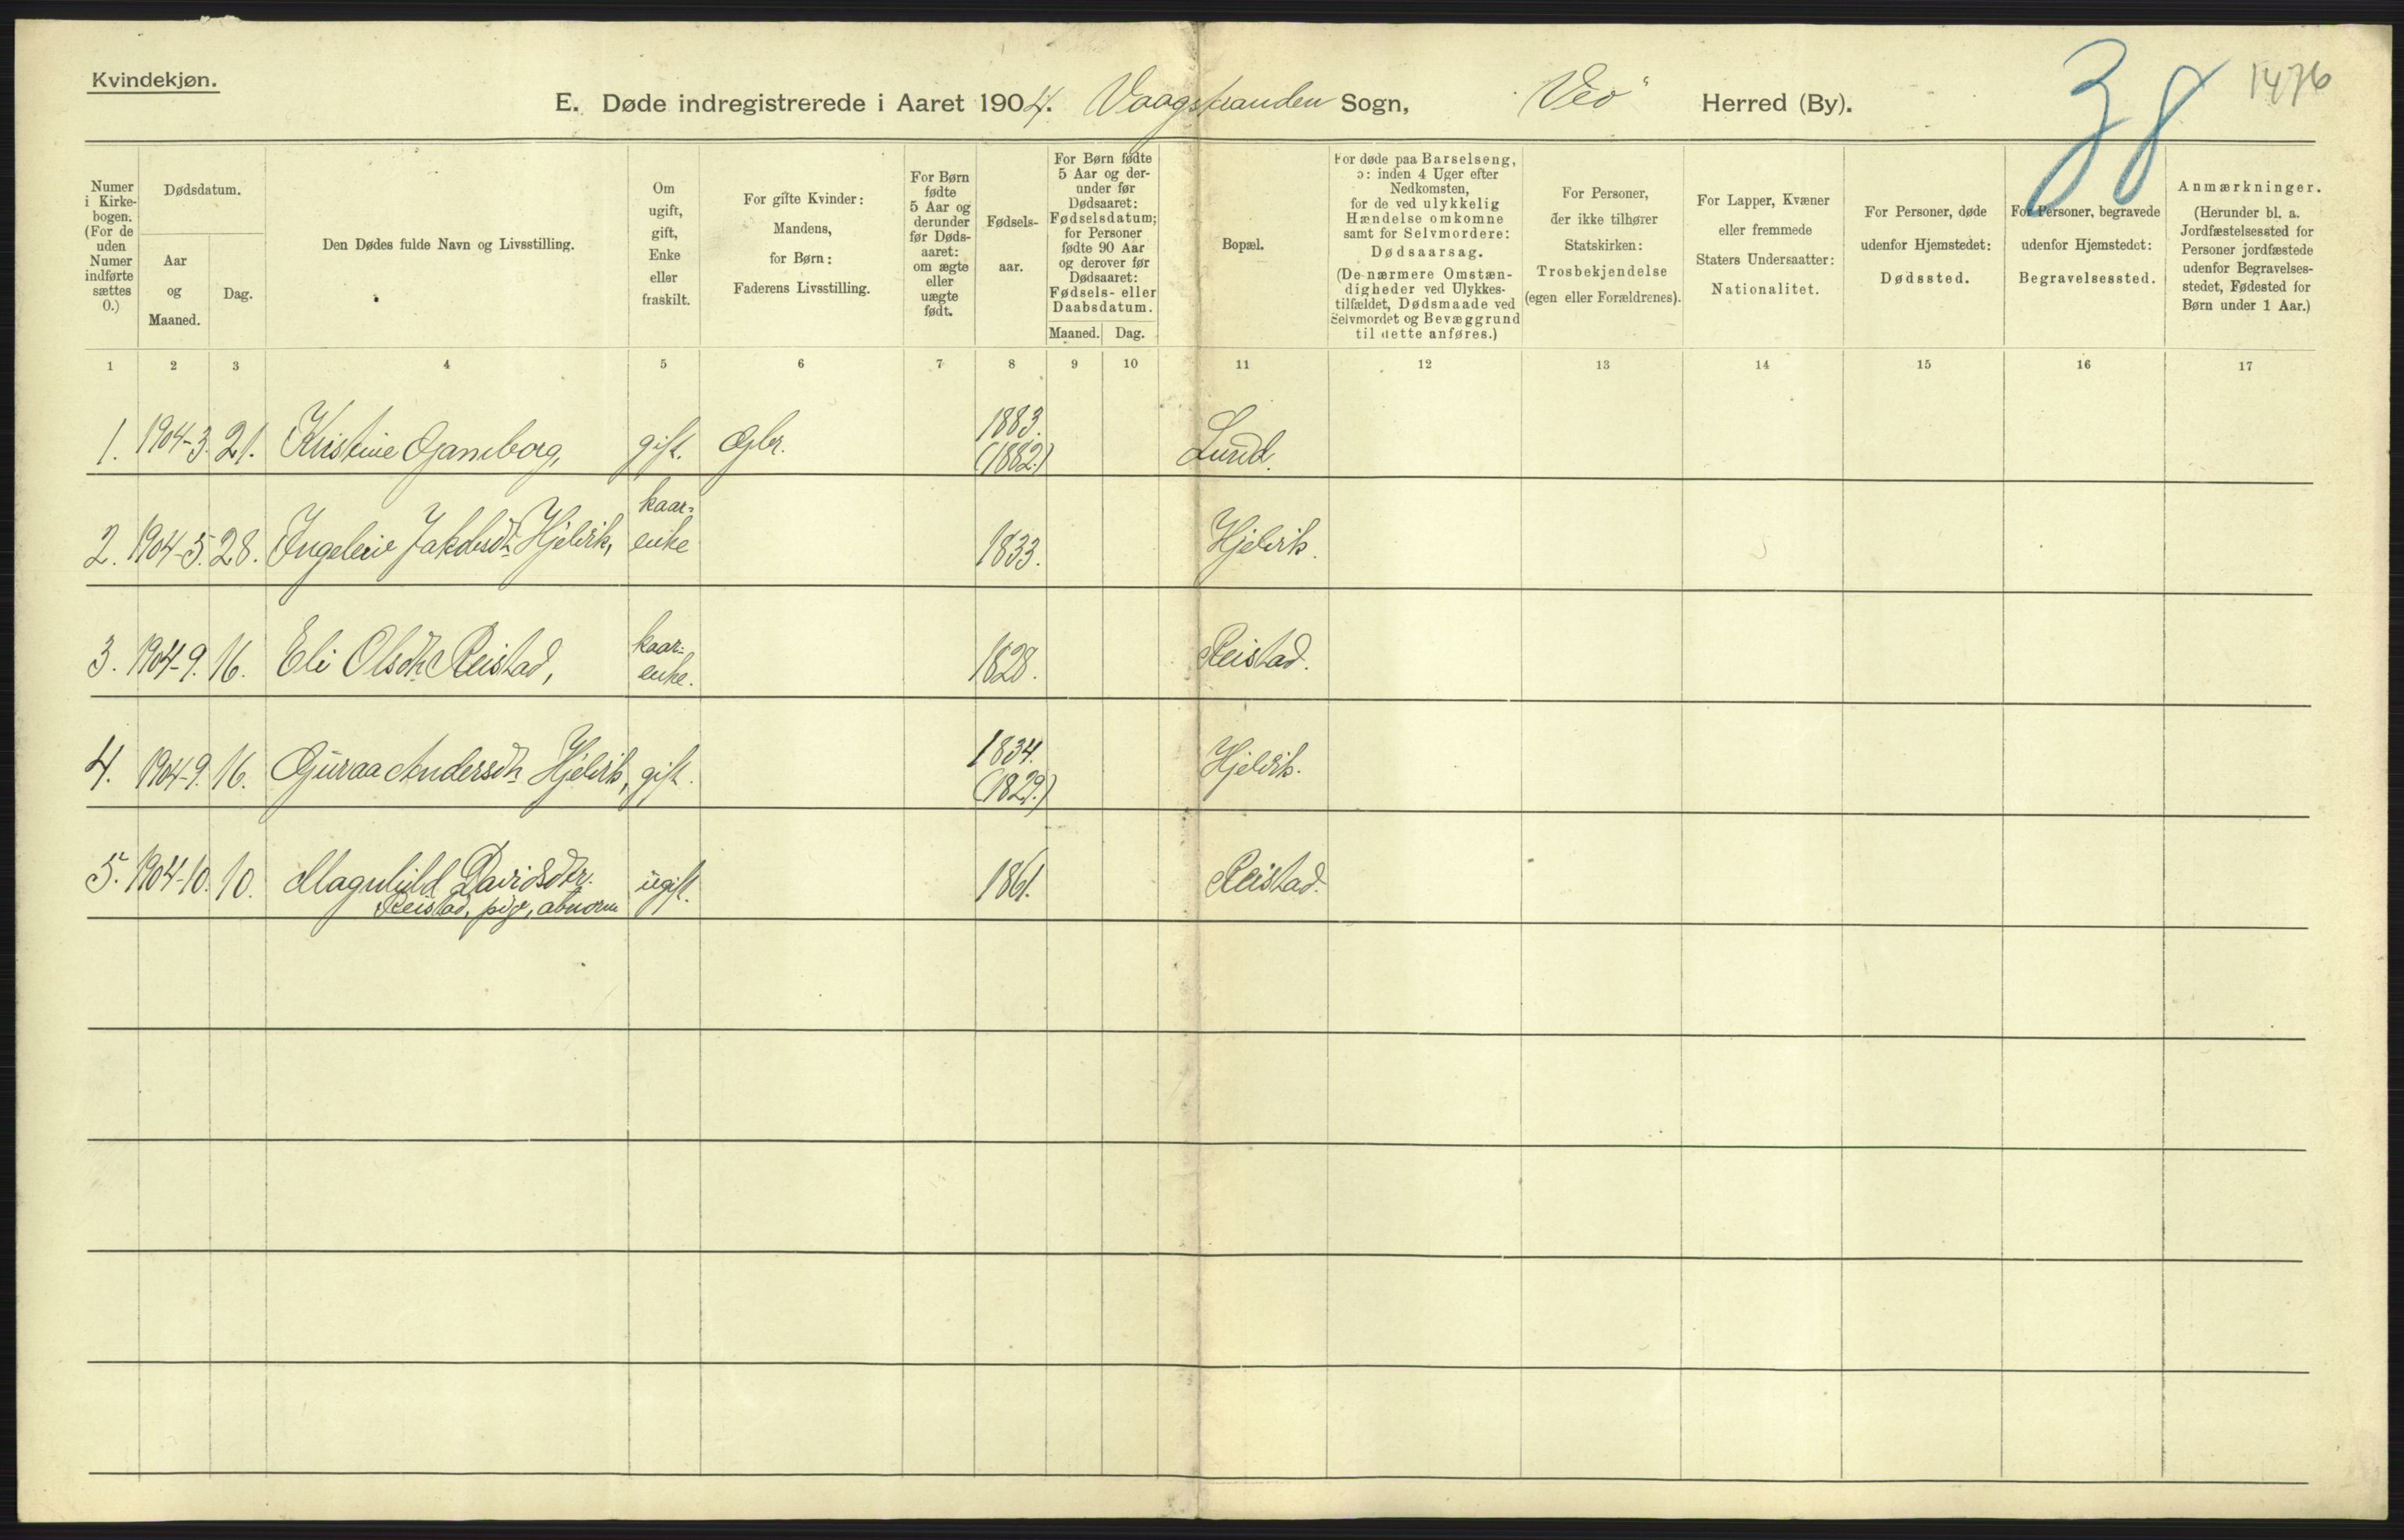 Kvindekjøn.
E. Døde indregistrerede i Aaret 1904. Vaagstranden Sogn, Veø Herred (By).
38
1476
Numer i Kirke-bogen. (For de uden Numer indførte sættes 0.)
Dødsdatum.
Aar og Maaned.
Dag.
Den Dødes fulde Navn og Livsstilling.
Om ugift, gift, Enke eller fraskilt.
For gifte Kvinder: Mandens, for Børn: Faderens Livsstilling.
For Børn fødte 5 Aar og derunder før Døds-aaret: om ægte eller uægte født.
Fødsels-aar.
For Børn fødte 5 Aar og der-under før Dødsaaret: Fødselsdatum; for Personer fødte 90 Aar og derover før Dødsaaret: Fødsels- eller Daabsdatum.
Maaned. Dag.
Bopæl.
For døde paa Barselseng, ɔ: inden 4 Uger efter Nedkomsten, for de ved ulykkelig Hændelse omkomne samt for Selvmordere: Dødsaarsag. (De nærmere Omstæn-digheder ved Ulykkes-tilfældet, Dødsmaade ved Selvmordet og Bevæggrund til dette anføres.)
For Personer, der ikke tilhører Statskirken: Trosbekjendelse (egen eller Forældrenes).
For Lapper, Kvæner eller fremmede Staters Undersaatter: Nationalitet.
For Personer, døde udenfor Hjemstedet: Dødssted.
For Personer, begravede udenfor Hjemstedet: Begravelsessted.
Anmærkninger. (Herunder bl. a. Jordfæstelsessted for Personer jordfæstede udenfor Begravelses-stedet, Fødested for Børn under 1 Aar.)
1 2 3 4 5 6 7 8 9 10 11 12 13 14 15 16 17
1. 1904-3. 21. Kristine Gjamborg, gift. Gbr. 1883. (1882.) Lund.
2. 1904-5. 28. Ingeleiv Jakobsdtr Hjelvik, kaar-enke 1833. Hjelvik.
3. 1904-9. 16. Eli Olsdtr Reistad, kaar-enke. 1828. Reistad.
4. 1904-9. 16. Guraa Andersdtr Hjelvik, gift. 1834. (1829.) Hjelvik.
5. 1904-10. 10. Magnhild Davidsdtr. ugift. 1861. Reistad.
Reistad, pige, abnorm